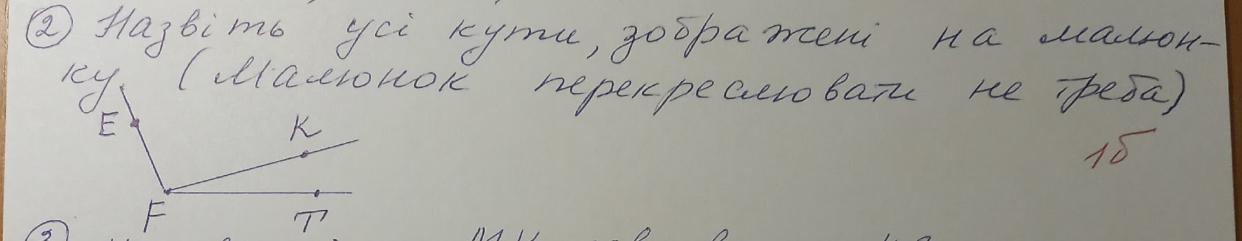 ② Назвіть усі кути, зображені на малюн-
ку (Малюнок перекреслювати не треба)
E
K
1б
F
T